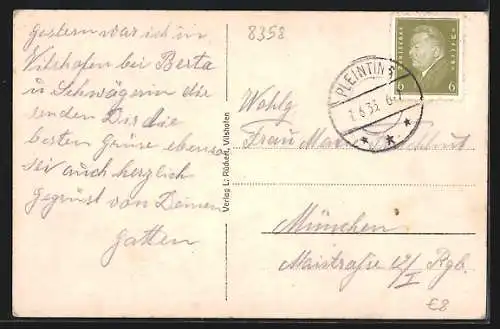 gestern war ich in
Vilshofen bei Berta
u Schwägerin die
senden Dir die
besten Grüße ebenso
sei auch herzlich
gegrüst von Deinem
Gatten
Verlag L. Rückert, Vilshofen
8358
DEUTSCHES REICH
6 6
PLEINTING
1.6.33.
Wohlg
Frau
München
Maistraße 12/I Rgb.
€8